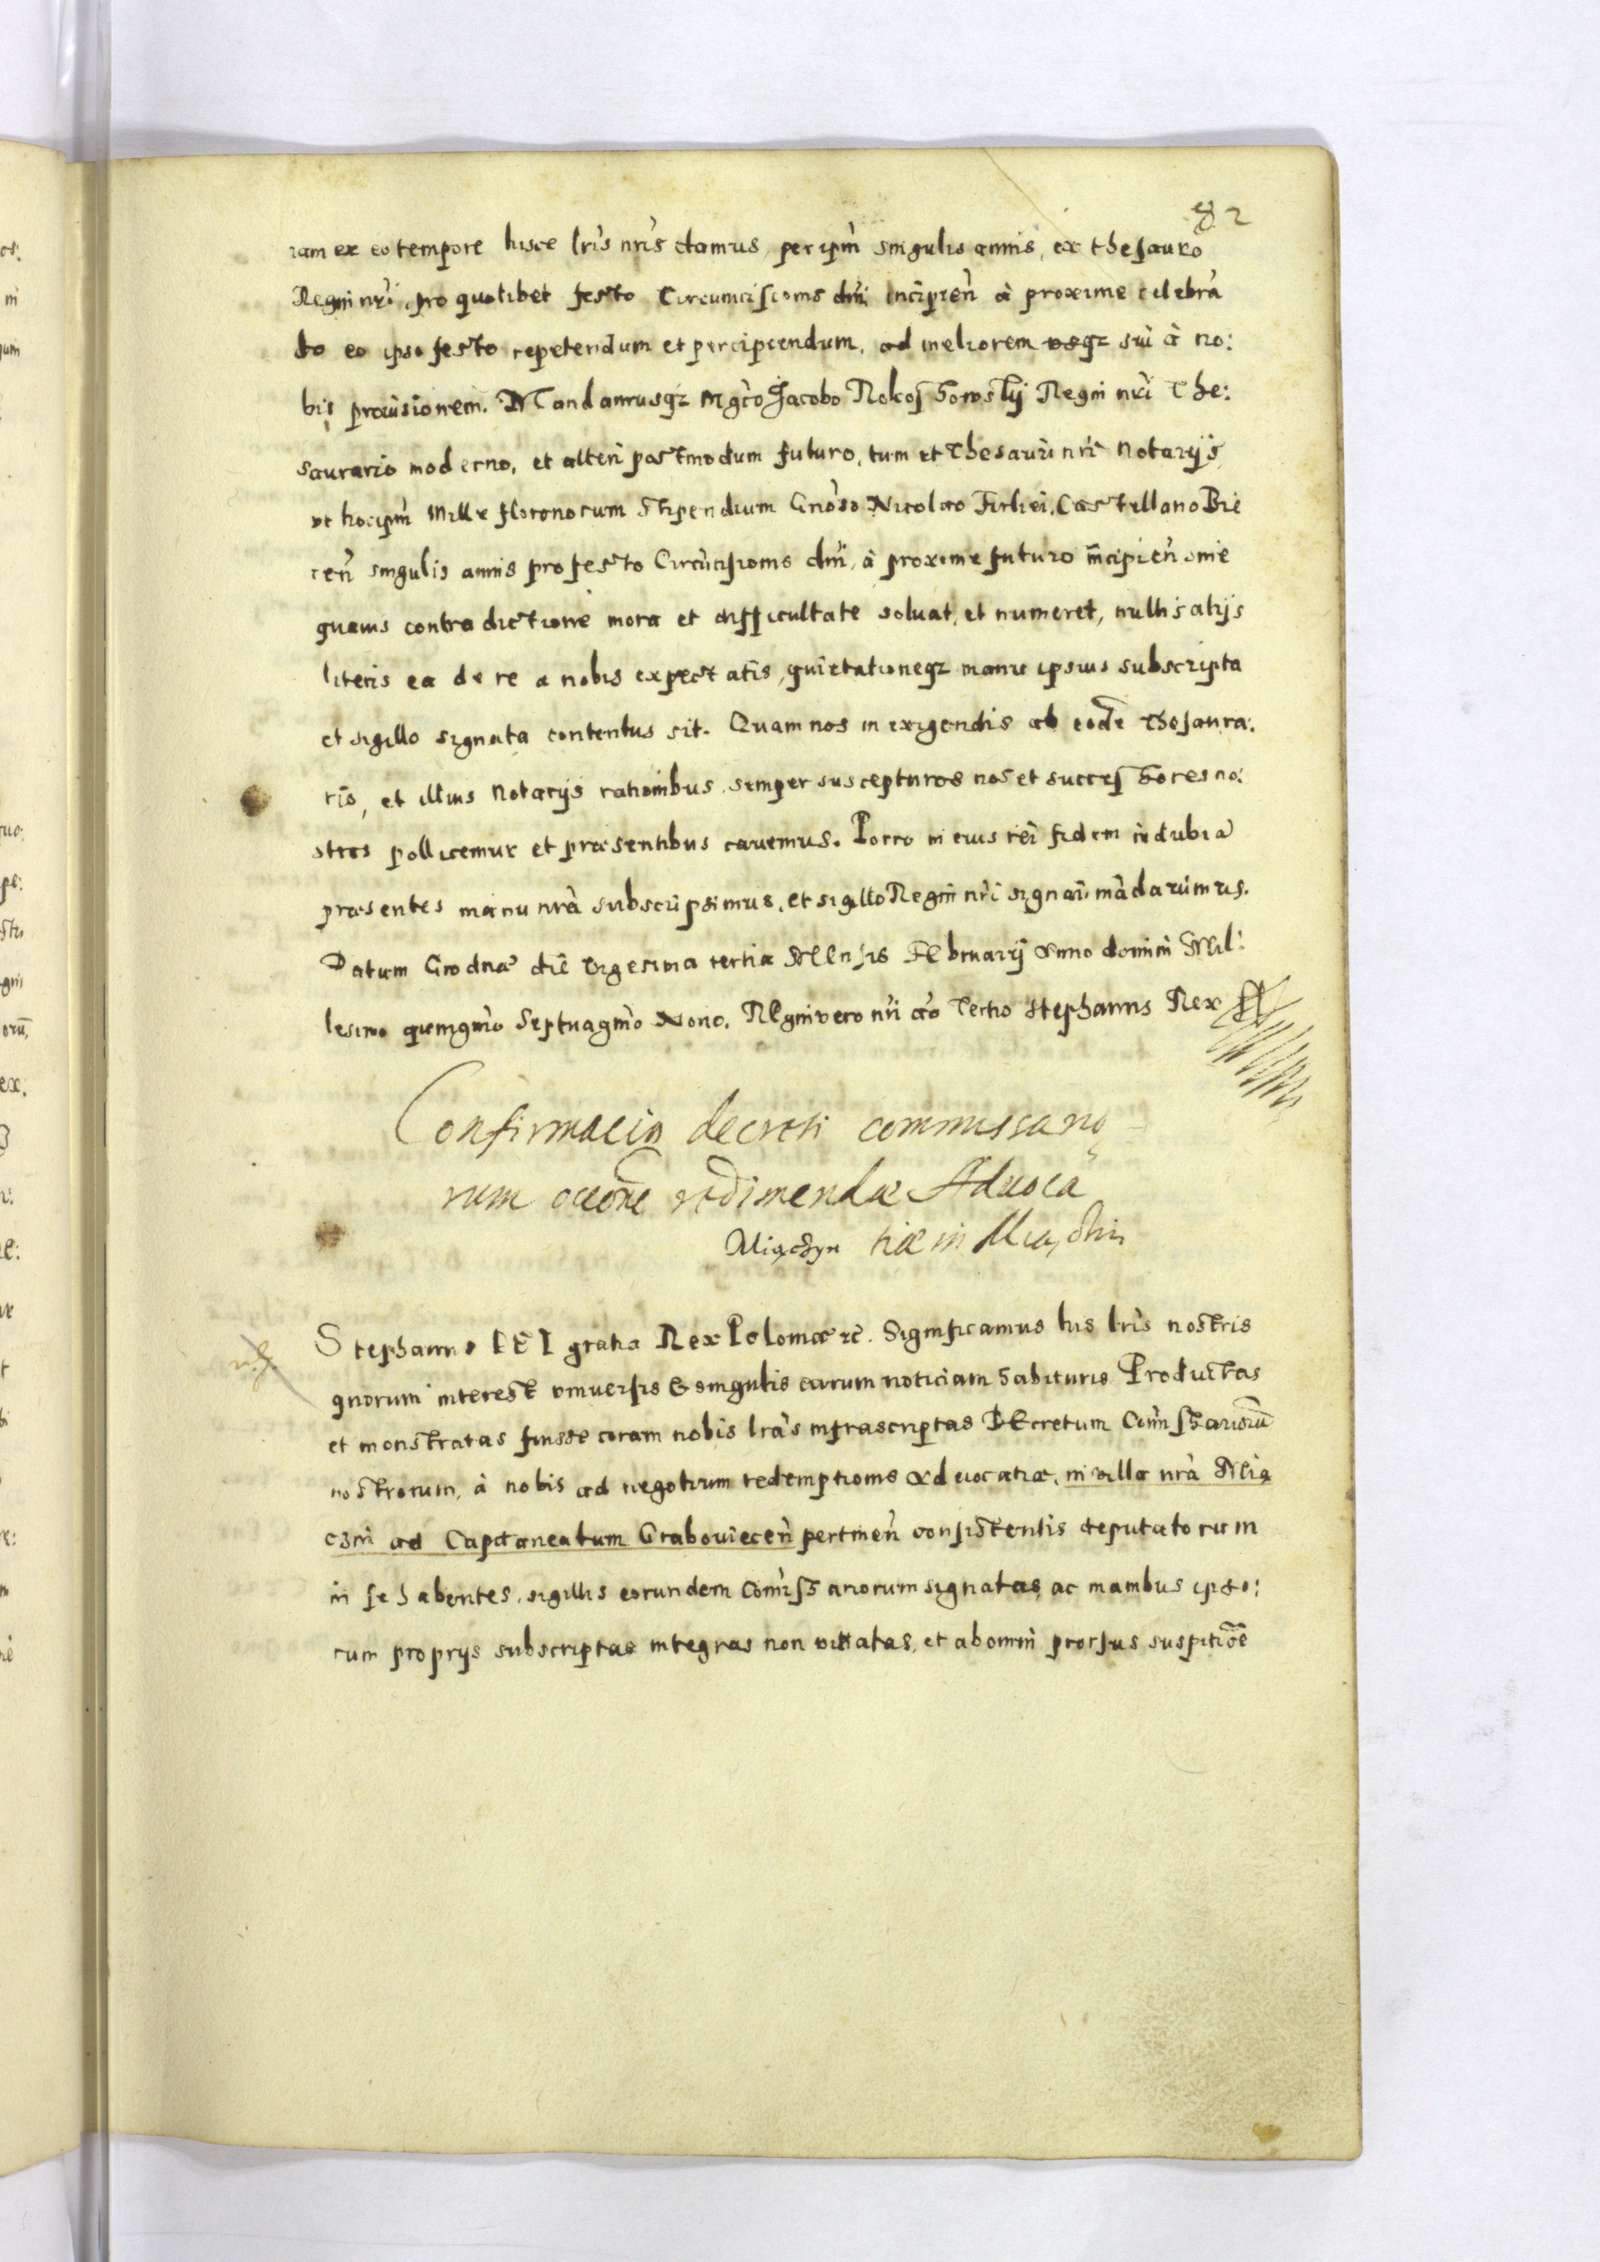 82
iam ex eo tempore hisce lris nris damus, per ipm singulis annis, ex thesauro
Regni nri, pro quolibet festo Circumcisionis dni incipien à proxime celebrã
do eo ipso festo repetendum et percipiendum, ad meliorem usqz sui à no:
bis provisionem. Mandamusqz Mgco Jacobo Rokossowsky Regni nri The:
saurario moderno, et alteri postmodum futuro, tum et Thesauri nri Notarijs,
ut hoc ipm Mille florenorum Stipendium Gnoso Nicolao Firlei, Castellano Bie
cen singulis annis pro festo Circũcisionis dni, à proxime futuro incipien omĩe
quavis contradictione mora et difficultate solvat, et numeret, nullis alijs
literis ea de re a nobis expectatis, quietationeqz manu ipsius subscripta
et sigillo signata contentus sit. Quam nos in exigendis ab eodẽ Thesaura:
rio, et illius Notarijs rationibus, semper suscepturos nos et successores no:
stros pollicemur et præsentibus cavemus. Porro in eius rei fidem indubiã
præsentes manu nrã subscripsimus, et sigillo Regni nri signari mãdavimus.
Datum Grodnæ die vigesima tertia Mensis Februarij Anno domini Mil:
lesimo quingmo Septuagmo Nono. Regni vero nri ao Tertio Stephanus Rex
Confirmacio decreti commissario
rum occõne redimendæ Advoca
tiæ in Miączin
Miączyn
Stephanus DEI gratia Rex Poloniæ zc. Significamus his lris nostris
quorum interest universis & singulis earum noticiam habituris Productas
et monstratas fuisse coram nobis lras infrascriptas DEcretum Comissariorũ
nostrorum, à nobis ad negotium redemptionis Advocatiæ, in villa nrã Mią
czin ad Capitaneatum Graboviecen pertinen consistentis deputatorum
in se habentes, sigillis eorundem Comissariorum signatas, ac manibus ipso:
rum proprijs subscriptas integras non vitiatas, et ab omni prorsus suspitiõe